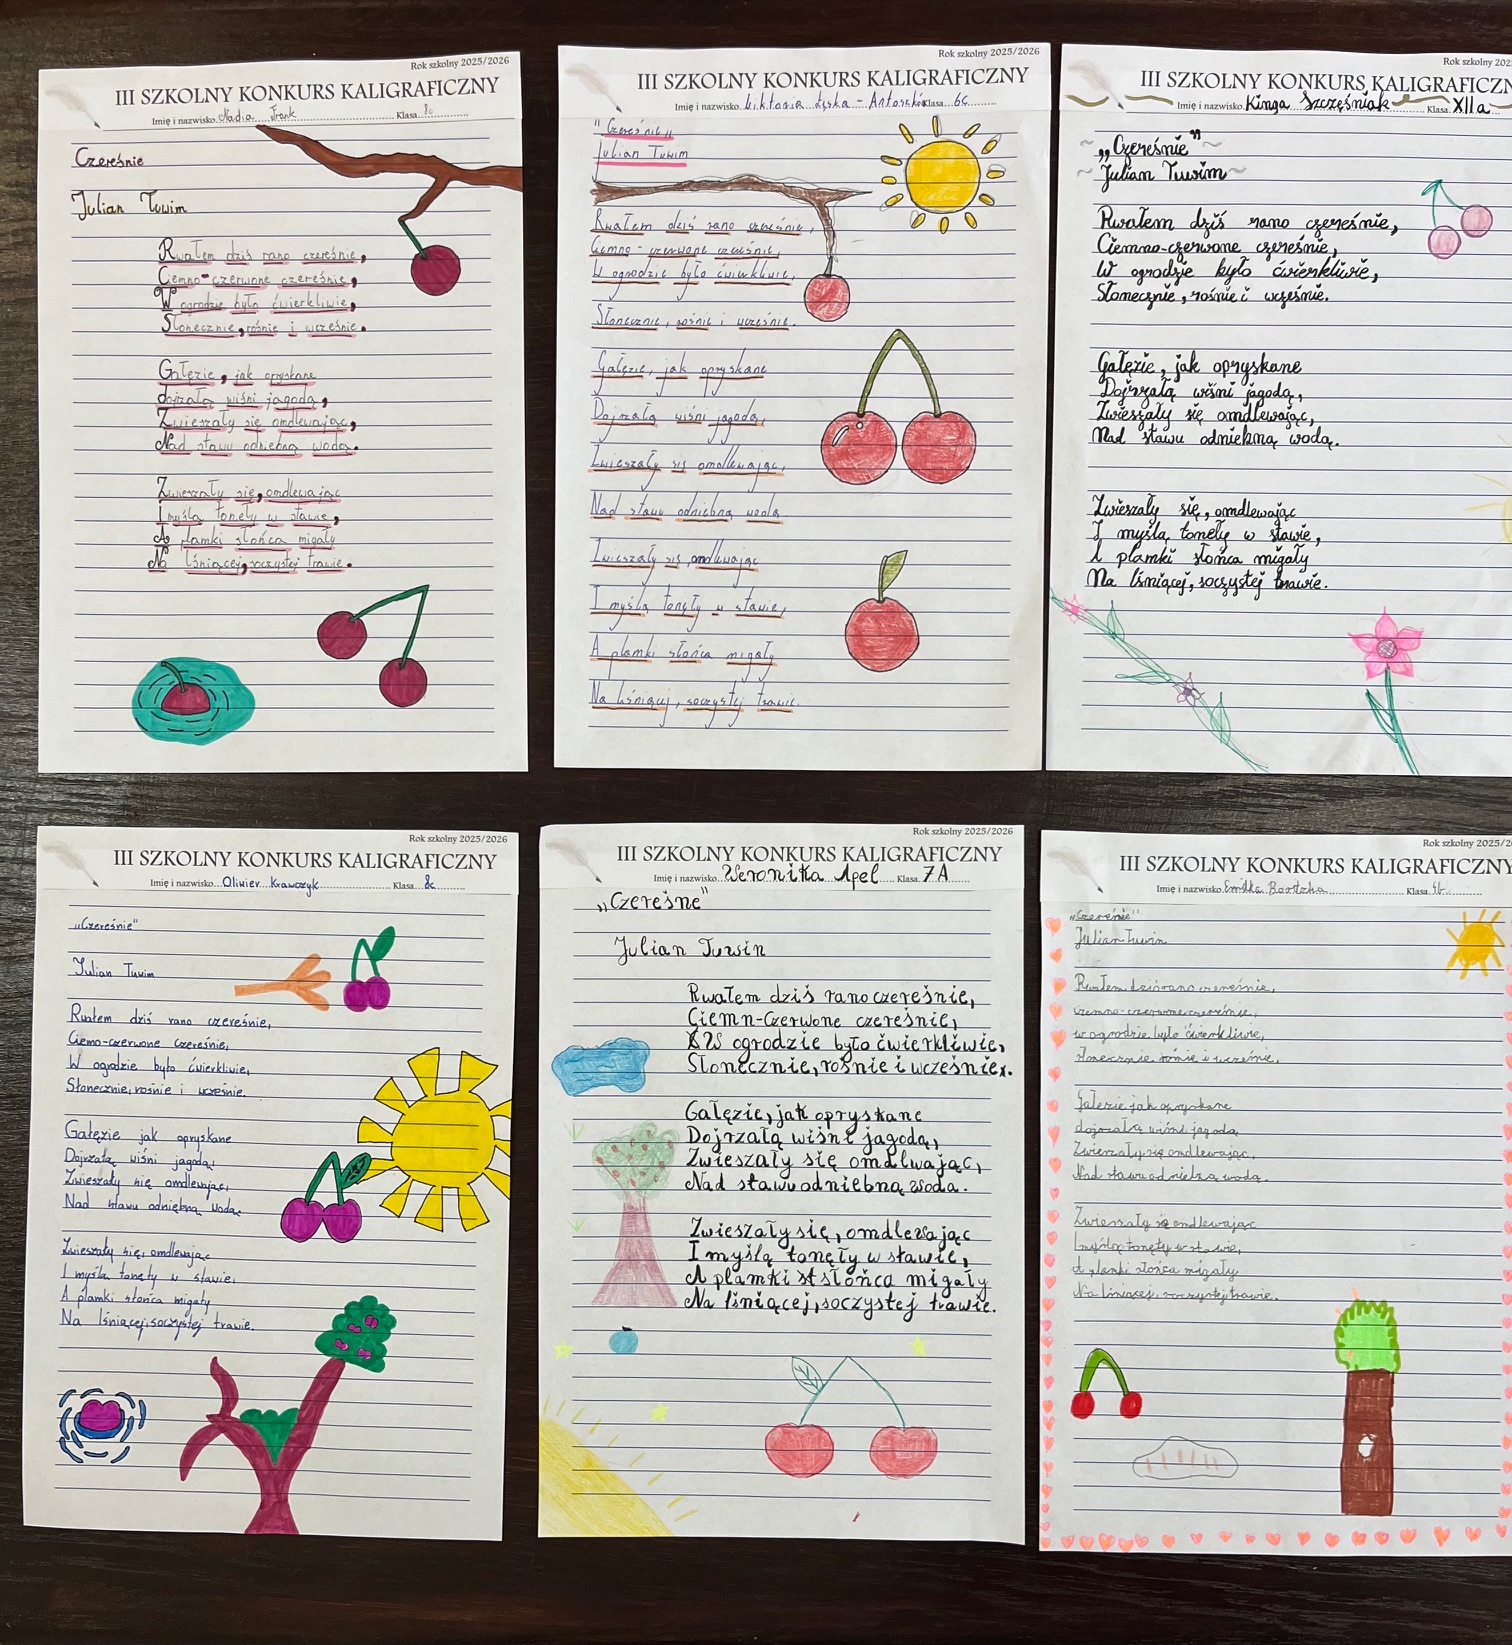 Rok szkolny 2025/2026
III SZKOLNY KONKURS KALIGRAFICZNY
Imię i nazwisko Nadia Frank Klasa 8c
Czereśnie
Julian Tuwim
Rwałem dziś rano czereśnie,
Ciemno-czerwone czereśnie,
W ogrodzie było ćwierkliwie,
Słonecznie, rośnie i wcześnie.
Gałęzie, jak opryskane
dojrzałą wiśni jagodą,
Zwieszały się omdlewając,
Nad stawu odniebną wodą.
Zwieszały się, omdlewając
I myślą tonęły w stawie,
A plamki słońca migały
Na lśniącej, soczystej trawie.
Rok szkolny 2025/2026
III SZKOLNY KONKURS KALIGRAFICZNY
Imię i nazwisko Wiktoria Łyska - Antoszków Klasa 6c
"Czereśnie„
Julian Tuwim
Rwałem dziś rano czereśnie,
Ciemno - czerwone czereśnie,
W ogrodzie było ćwierkliwie,
Słonecznie, rośnie i wcześnie.
Gałęzie, jak opryskane
Dojrzałą wiśni jagodą,
Zwieszały się omdlewając,
Nad stawu odniebną wodą.
Zwieszały się, omdlewając
I myślą tonęły w stawie,
A plamki słońca migały
Na lśniącej, soczystej trawie.
Rok szkolny 202
III SZKOLNY KONKURS KALIGRAFICZN
Imię i nazwisko Kinga Szcześniak Klasa XII a
„Czereśnie"
Julian Tuwim
Rwałem dziś rano czereśnie,
Ciemno-czerwone czereśnie,
W ogrodzie było ćwierkliwie,
Słonecznie, rośnie i wcześnie.
Gałęzie, jak opryskane
Dojrzałą wiśni jagodą,
Zwieszały się omdlewając,
Nad stawu odniebną wodą.
Zwieszały się, omdlewając
I myślą tonęły w stawie,
A plamki słońca migały
Na lśniącej, soczystej trawie.
Rok szkolny 2025/2026
III SZKOLNY KONKURS KALIGRAFICZNY
Imię i nazwisko Oliwier Krawczyk Klasa 8c
„Czereśnie"
Julian Tuwim
Rwałem dziś rano czereśnie,
Ciemo-czerwone czereśnie,
W ogrodzie było ćwierkliwie,
Słonecznie, rośnie i wcześnie.
Gałęzie jak opryskane
Dojrzałą wiśni jagodą,
Zwieszały się omdlewając,
Nad stawu odniebną wodą.
Zwieszały się, omdlewając
I myślą tonęły w stawie,
A plamki słońca migały
Na lśniącej, soczystej trawie.
Rok szkolny 2025/2026
III SZKOLNY KONKURS KALIGRAFICZNY
Imię i nazwisko Weronika Apel Klasa 7A
„Czereśne"
Julian Tuwin
Rwałem dziś rano czereśnie,
Ciemn-Czerwone czereśnie,
W ogrodzie było ćwierkliwie,
Słonecznie, rośnie i wcześnie.
Gałęzie, jak opryskane
Dojrzałą wiśni jagodą,
Zwieszały się omdlwając,
Nad stawu odniebną woda.
Zwieszały się, omdlewając
I myślą tonęły w stawie,
A plamki st słońca migały
Na lśniącej, soczystej trawie.
Rok szkolny 2025/2
III SZKOLNY KONKURS KALIGRAFICZNY
Imię i nazwisko Emilka Klasa
„Czereśnie"
Julian Tuwin
Rwałem dziś rano czereśnie,
czemno-czerwone czereśnie,
w ogrodzie było ćwierkliwie,
słonecznie, rośnie i wcześnie,
Gałęzie jak opryskane
dojrzałą wiśni jagodą
Zwierzały się omdlewając,
Nad stawu wodą.
Zwierzały się omdlewając
I myślą tonęły w stawie,
A plamki słońca migały
Na lśniącej, soczystej trawie.